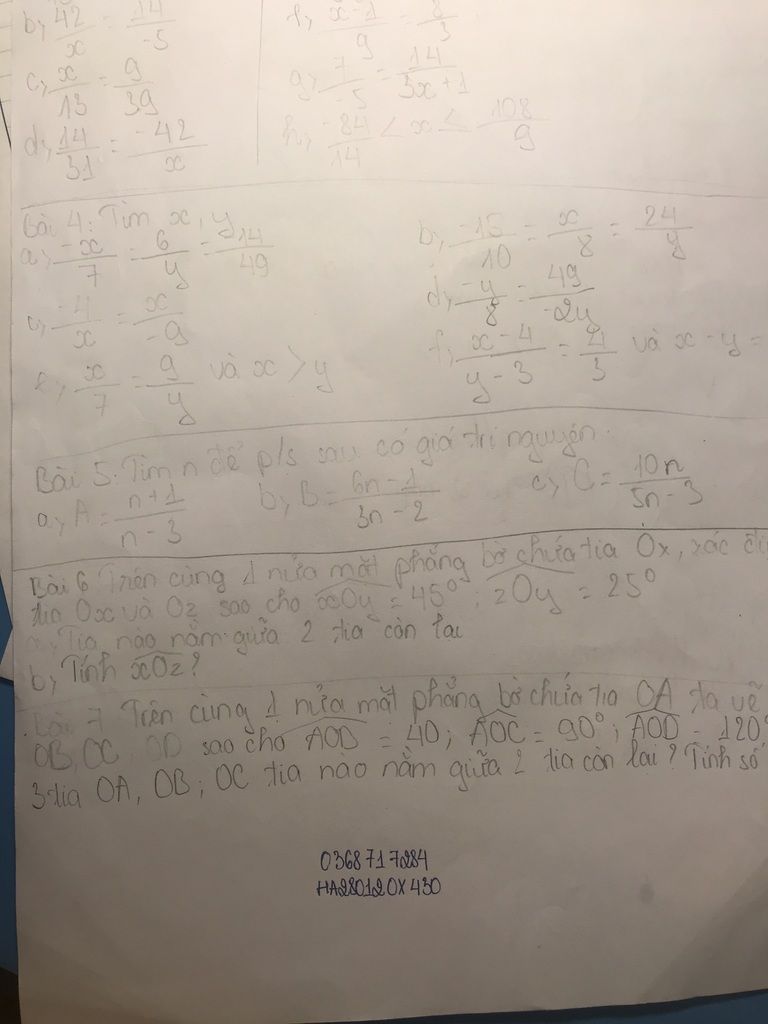 b, 42/x = 14/-5
f, x-1/9 = 8/3
c, x/13 = 9/39
g, 7/-5 = 14/3x+1
d, 14/31 = -42/x
h, -84/14 < x ≤ 108/9
Bài 4: Tìm x, y
a, -x/7 = 6/y = 14/49
b, -15/10 = x/8 = 24/y
c, -4/x = x/-9
d, -y/8 = 49/-2y
x/7 = 9/y và x > y
f, x-4/y-3 = 4/3 và x-y =
Bài 5: Tìm n để p/s sau có giá trị nguyên.
a, A = n+1/n-3
b, B = 6n-1/3n-2
c, C = 10n/5n-3
Bài 6 Trên cùng 1 nửa mặt phẳng bờ chứa tia Ox, xác
tia Ox và Oz sao cho xOy = 45°; zOy = 25°
a, Tia nào nằm giữa 2 tia còn lại
b, Tính xOz?
Bài 7 Trên cùng 1 nửa mặt phẳng bờ chứa tia OA ta vẽ
OB, OC OD sao cho AOD = 40; AOC = 90°; AOD = 120°
3 tia OA, OB; OC tia nào nằm giữa 2 tia còn lại? Tính số
0368717284
HA280120X430